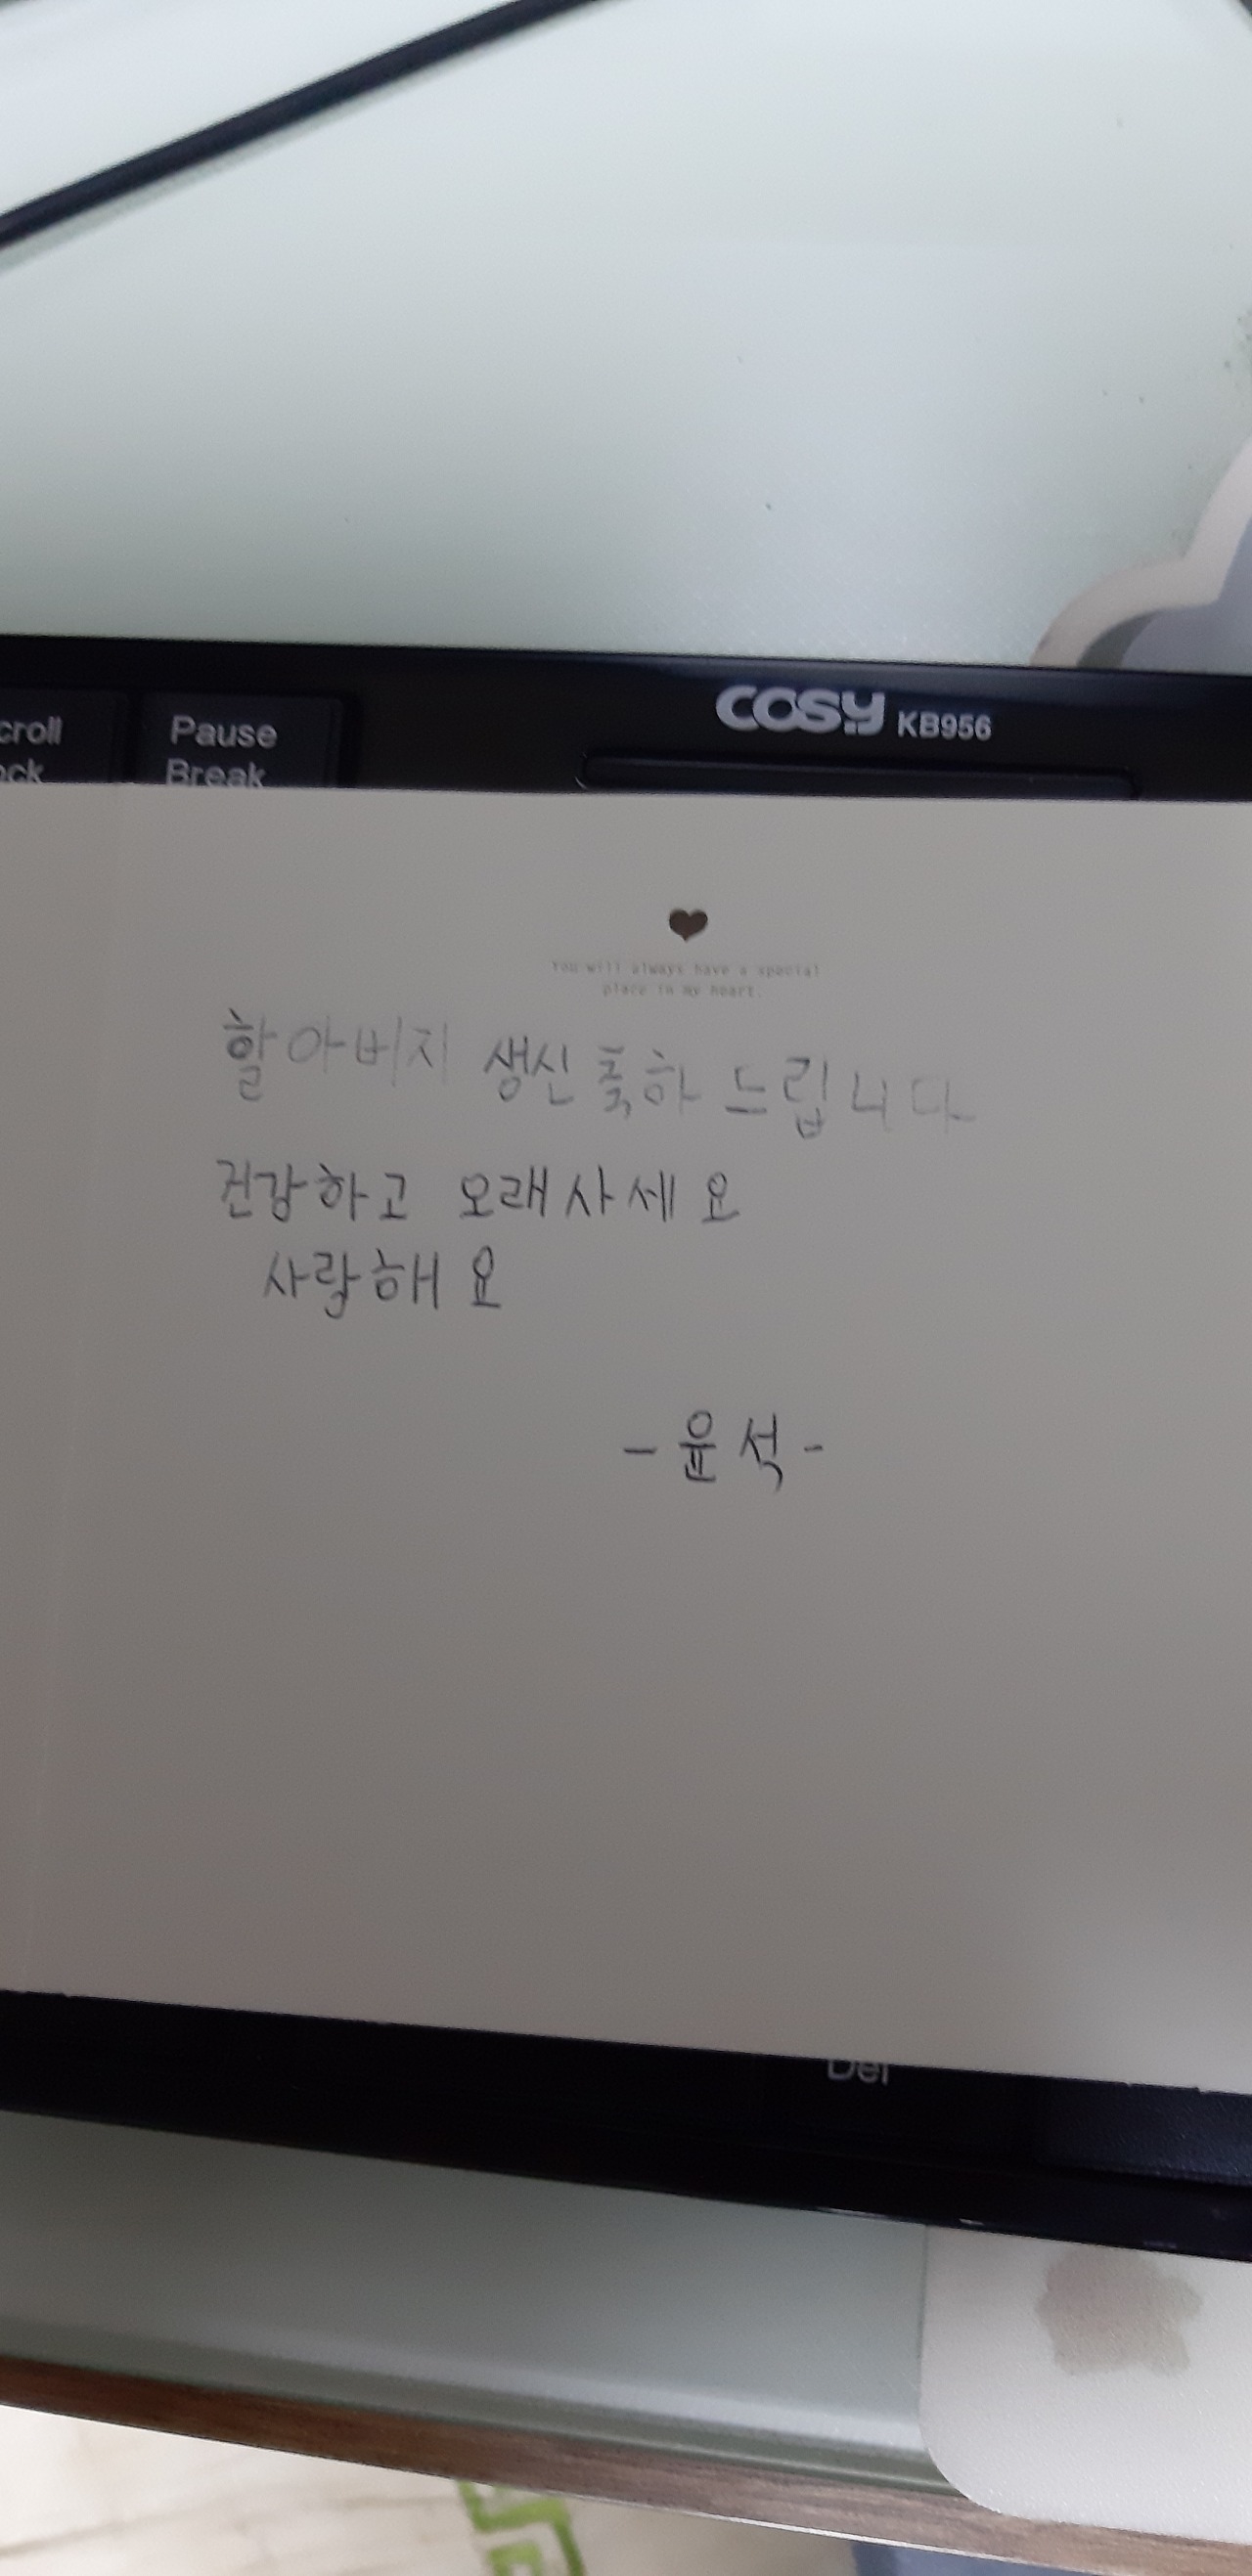 croll
ock
Pause
Break
COSY KB956
You will always have a special
place in my heart.
할아버지 생신축하 드립니다
건강하고 오래사세요
사랑해요
-윤석-
Del